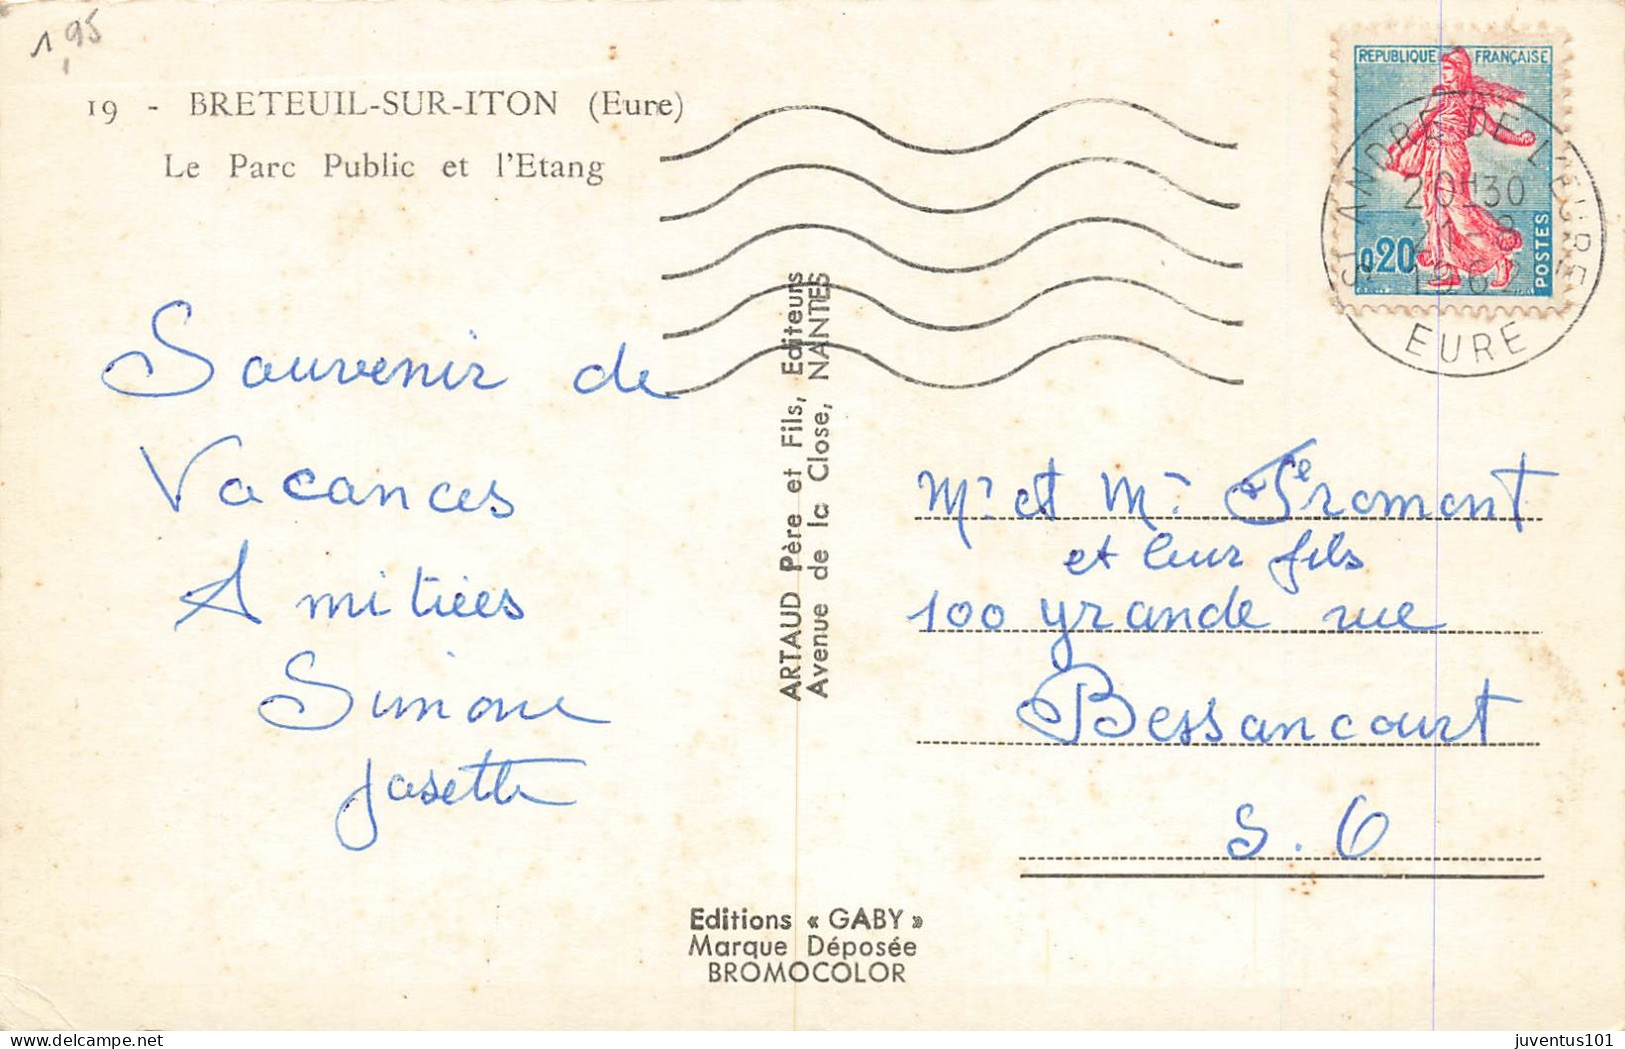 1,95
19 - BRETEUIL-SUR-ITON (Eure)
Le Parc Public et l'Etang
REPUBLIQUE FRANÇAISE
0,20
POSTES
ST ANDRE DE L'EURE
20H30
21-8
EURE
Souvenir de
Vacances
Amitiées
Simone
Josette
ARTAUD Père et Fils, Editeurs
Avenue de la Close, NANTES
Mr et Me Fromont
et leur fils
100 grande rue
Bessancourt
S. O
Editions « GABY »
Marque Déposée
BROMOCOLOR
juventus101